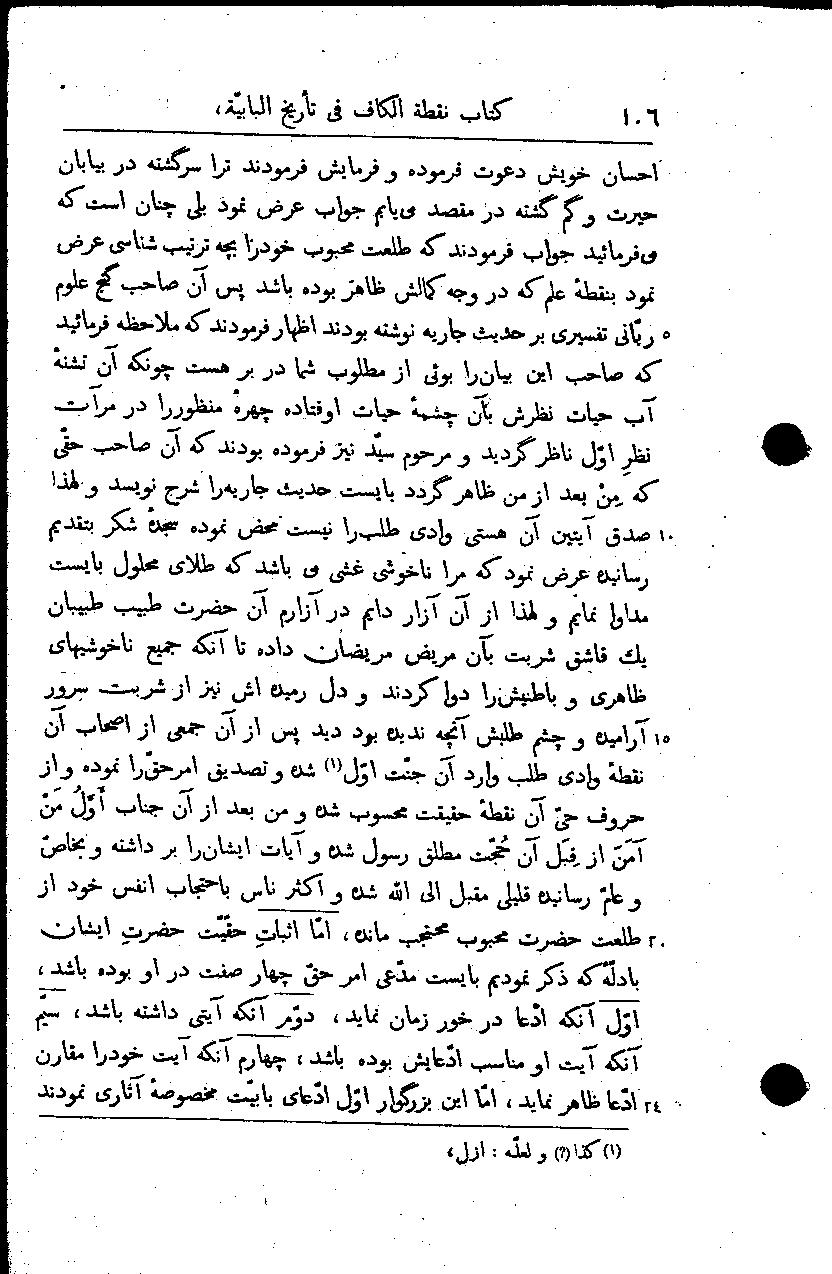 ۱۰۶ کتاب نقطة الکاف فی تأریخ البابیّة،
احسان خویش دعوت فرموده و فرمایش فرمودند ترا سرگشته در بیابان
حیرت و گم گشته در مقصد می‌یابم جواب عرض نمود بلی چنان است که
می‌فرمائید جواب فرمودند که طلعت محبوب خودرا بچه ترتیب شناسی عرض
نمود بنقطهٔ علم که در وجه کمالش ظاهر بوده باشد پس آن صاحب گنج علوم
۵ ربّانی تفسیری بر حدیث جاریه نوشته بودند اظهار فرمودند که ملاحظه فرمائید
که صاحب این بیان‌را بوئی از مطلوب شما در بر هست چونکه آن تشنهٔ
آب حیات نظرش بآن چشمهٔ حیات اوفتاده چهرهٔ منظوررا در مرآت
نظرِ اوّل ناظر گردید و مرحوم سیّد نیز فرموده بودند که آن صاحب حقّی
که مِنْ بعد از من ظاهر گردد بایست حدیث جاریه‌را شرح نویسد و لهذا
۱۰ صدق آیتین آن هستی وادی طلب‌را نیست محض نموده سجدهٔ شکر بتقدیم
رسانیده عرض نمود که مرا ناخوشی غشی می باشد که طلای محلول بایست
مداوا نمایم و لهذا از آن آزار دایم در آزارم آن حضرت طبیب طبیبان
یك قاشق شربت بآن مریض مریضان داده تا آنکه جمیع ناخوشیهای
ظاهری و باطنیش‌را دوا کردند و دل رمیده اش نیز از شربت سرور
۱۵ آرامیده و چشم طلبش آنچه ندیده بود دید پس از آن جمعی از اصحاب آن
نقطهٔ وادی طلب وارد آن جنّت اوّل(۱) شده و تصدیق امر حقّ‌را نموده و از
حروف حیّ آن نقطهٔ حقیقت محسوب شده و من بعد از آن جناب أَوَّلُ مَنْ
آمَنَ از قِبَل آن حُجّت مطلق رسول شده و آیات ایشان‌را بر داشته و بخاصّ
و علمّ رسانیده قلیلی مقبل الی الله شده و اکثر ناس باحتجاب انفس خود از
۲۰ طلعت حضرت محبوب محتجب مانده، امّا اثباتِ حقّیّت حضرتِ ایشان
بادلّهٔ که ذکر نمودیم بایست مدّعی امر حقّ چهار صفت در او بوده باشد،
اوّل آنکه ادّعا در خور زمان نماید، دوّمر آنکه آیتی داشته باشد، سیّم
آنکه آیت او مناسب ادّعایش بوده باشد، چهارم آنکه آیت خودرا مقارن
۲۴ ادّعا ظاهر نماید، امّا این بزرگوار اوّل ادّعای بابیّت مخصوصهٔ آثاری نمودند
(۱) کذا (؟) و لعلّه : ازل،